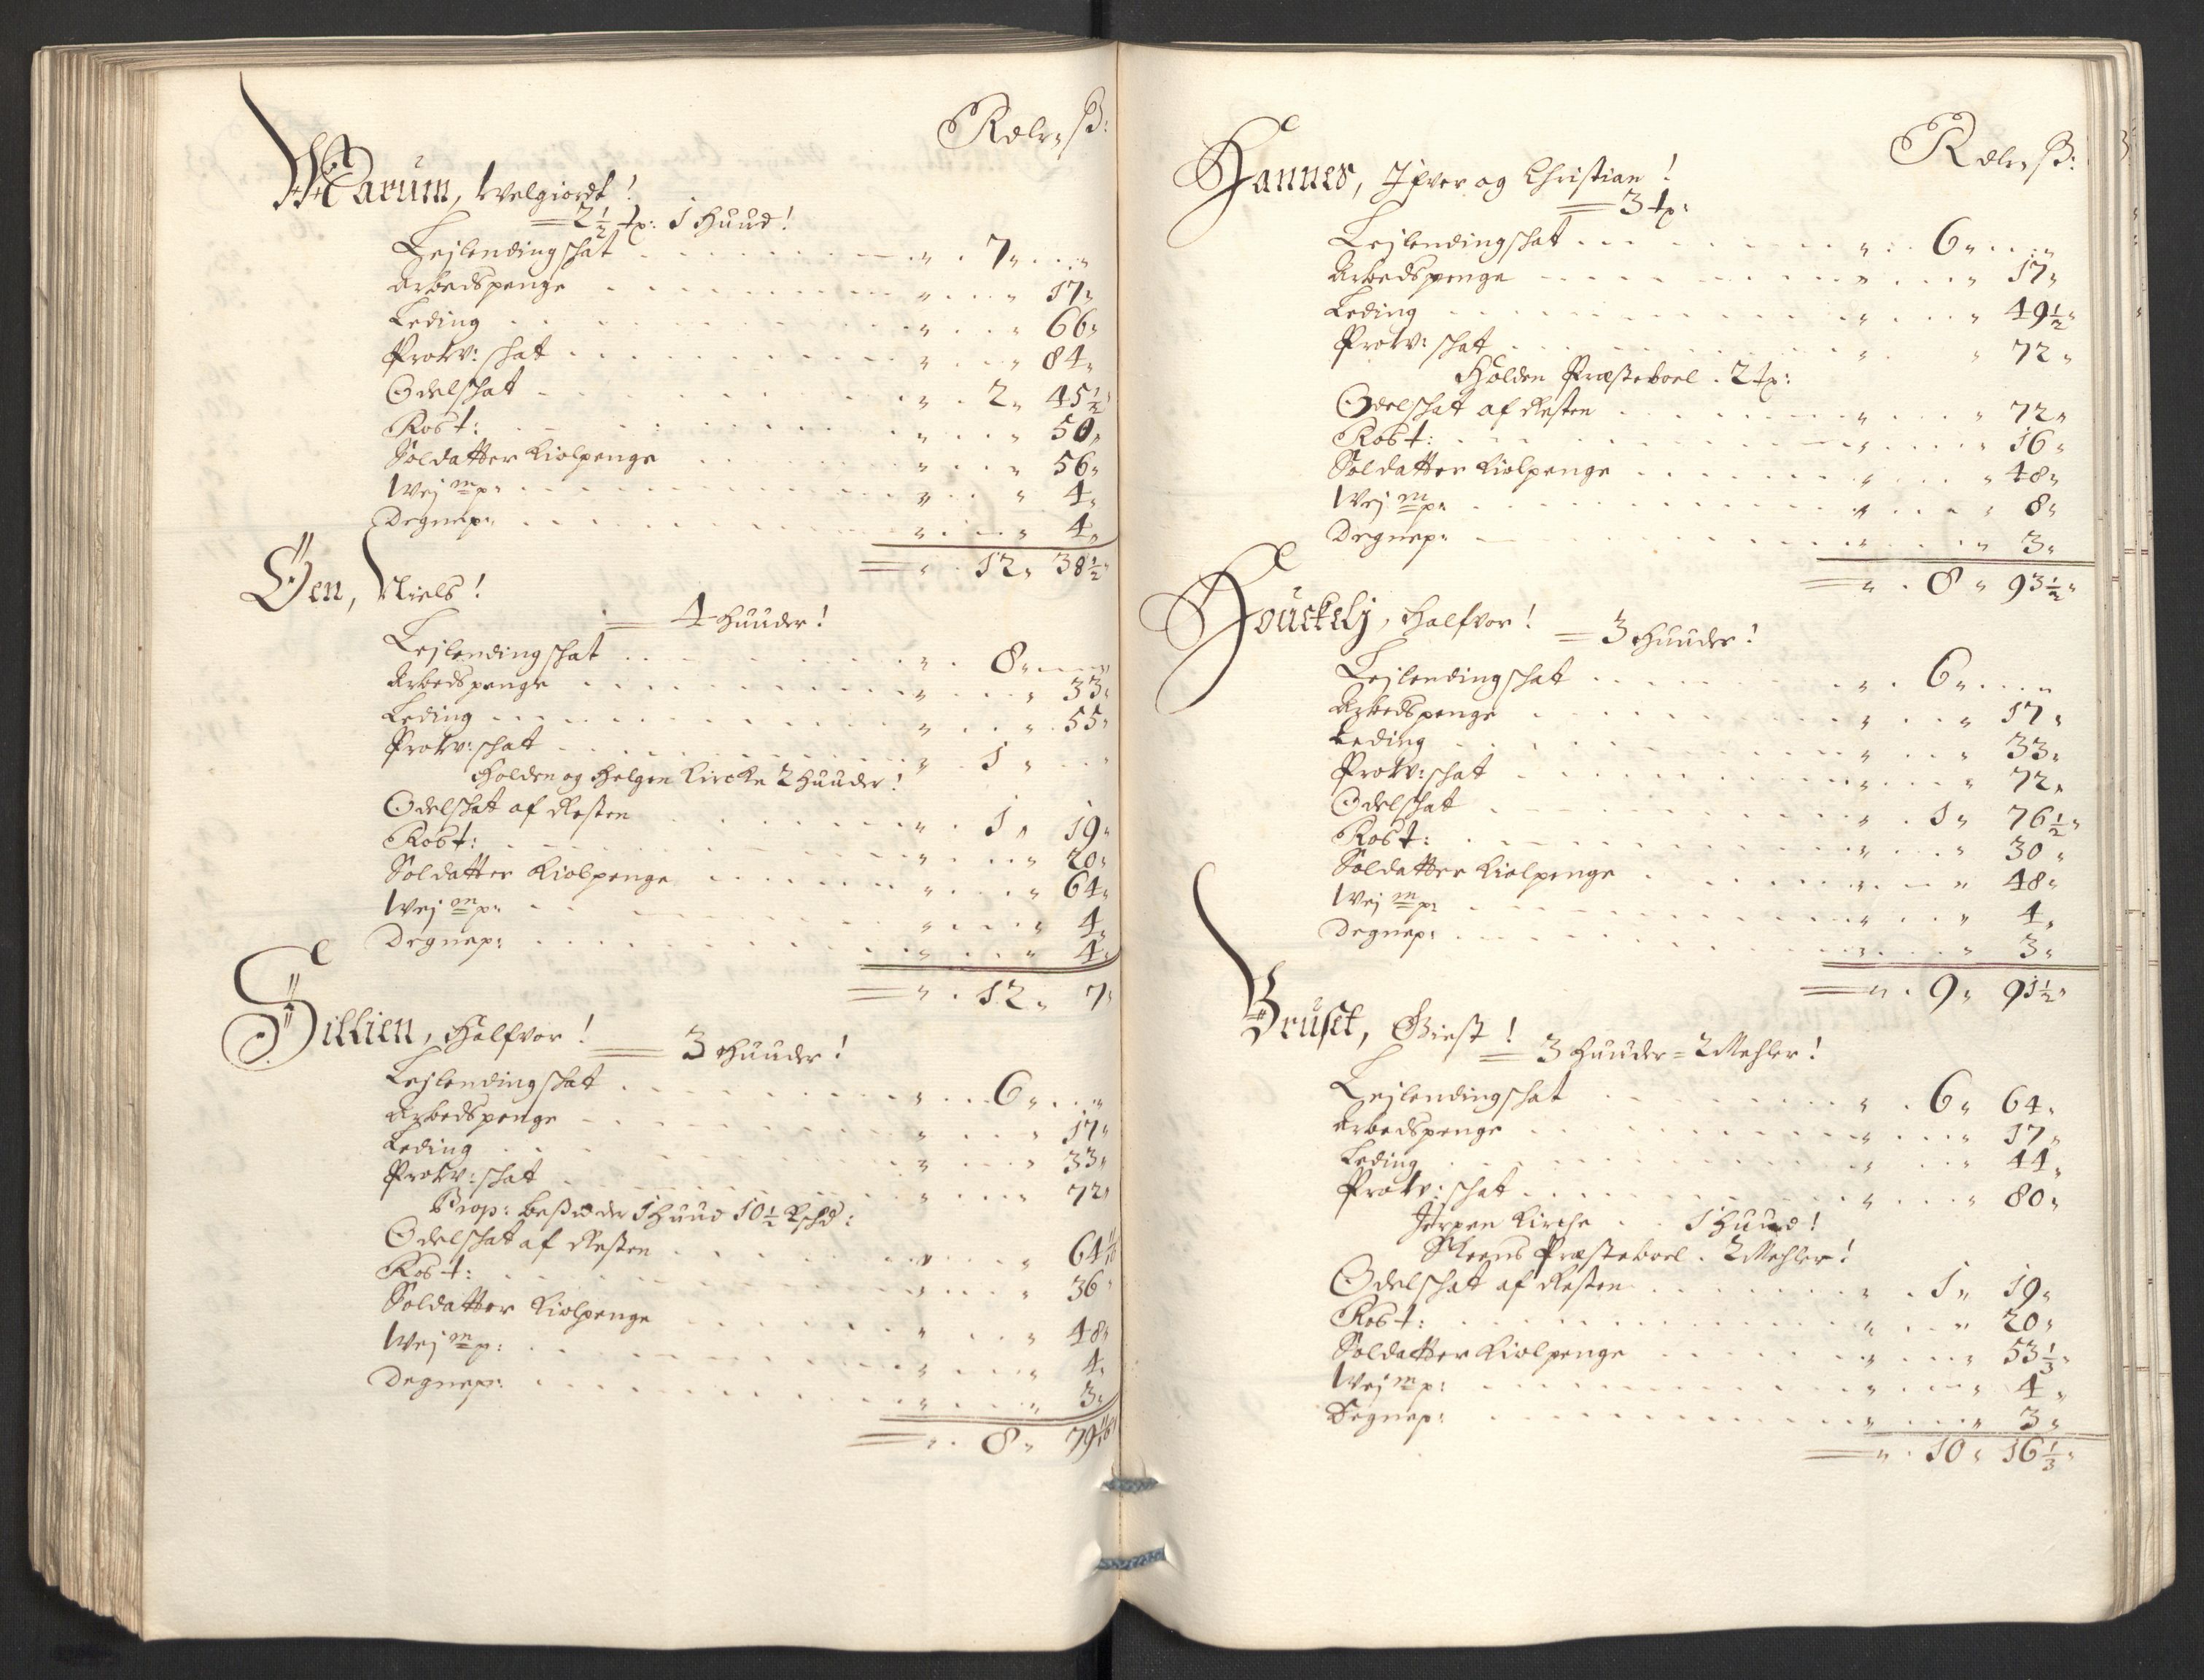 Rdlr„ ß:
Marum, Welgiordt!
= 2½ tp: 1 Huud!
Lejlendingschat „ 7„ „
Arbedspenge „ „ 17„
Leding „ „ 66„
Prow: schat „ „ 84„
Odelschat „ 2„ 45½„
Rost: „ „ 50„
Soldatter Kiolpenge „ „ 56„
Wej m p: „ „ 4„
Degnep: „ „ 4„
= „ 12„ 38½„
Øen, Niels!
= 4 Huuder!
Lejlendingschat „ 8„ „
Arbedspenge „ „ 33„
Leding „ „ 55„
Prow: schat „ 1„ „
Holden og Helgen Kircke 2 Huuder!
Odelschat af Resten „ 1„ 19„
Rost: „ „ 20„
Soldatter Kiolpenge „ „ 64„
Wej m p: „ „ 4„
Degnep: „ „ 4„
= „ 12„ 7„
Sillien, Halfvor!
= 3 Huuder!
Lejlendingschat „ 6„ „
Arbedspenge „ „ 17„
Leding „ „ 33„
Prow: schat „ „ 72„
Prop: besidder 1 Huud 10½ Rschd:
Odelschat af Resten „ „ 64
Rost: „ „ 36„
Soldatter Kiolpenge „ „ 48„
Wej m p: „ „ 4„
Degnep: „ „ 3„
= „ 8„ 79
Rdlr„ ß:
Hannes, Ifver og Christian!
= 3 tp:
Lejlendingschat „ 6„ „
Arbedspenge „ „ 17„
Leding „ „ 49½„
Prow: schat „ „ 72„
Holden Præsteboel . 2 tp:
Odelschat af Resten „ „ 72„
Rost: „ „ 16„
Soldatter Kiolpenge „ „ 48„
Wej m p: „ „ 8„
Degnep: „ „ 3„
= „ 8„ 93½„
Houckelj, Halfvor!
= 3 Huuder!
Lejlendingschat „ 6„ „
Arbedspenge „ „ 17„
Leding „ „ 33„
Prow: schat „ „ 72„
Odelschat „ 1„ 76½„
Rost: „ „ 30„
Soldatter Kiolpenge „ „ 48„
Wej m p: „ „ 4„
Degnep: „ „ 3„
= „ 9„ 91½„
Gruset, Giest!
= 3 Huuder = 2 Mehler!
Lejlendingschat „ 6„ 64„
Arbedspenge „ „ 17„
Leding „ „ 44„
Prow: schat „ „ 80„
Jerpen Kirche . . 1 Huud!
Skeens Præsteboel . 2 Mehler!
Odelschat af Resten „ 1„ 19„
Rost: „ „ 20„
Soldatter Kiolpenge „ „ 53⅓„
Wej m p: „ „ 4„
Degnep: „ „ 3„
= „ 10„ 16⅓„